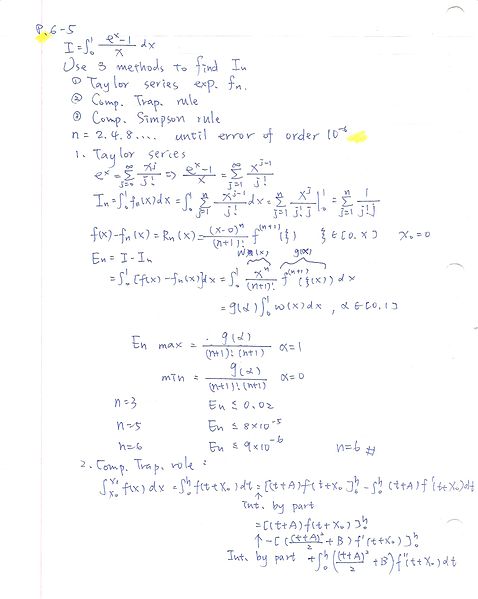 P. 6-5
I = ∫₀¹ (eˣ-1)/x dx
Use 3 methods to find In
① Taylor series exp. fn.
② Comp. Trap. rule
③ Comp. Simpson rule
n = 2. 4. 8.... until error of order 10⁻⁶
1. Taylor series
eˣ = Σ_{j=0}^∞ xʲ/j! ⇒ (eˣ-1)/x = Σ_{j=1}^∞ x^{j-1}/j!
In = ∫₀¹ fn(x)dx = ∫₀¹ Σ_{j=1}^n x^{j-1}/j! dx = Σ_{j=1}^n xʲ/(j!j) |₀¹ = Σ_{j=1}^n 1/(j!j)
f(x)-fn(x) = Rn(x) = (x-0)ⁿ/(n+1)! f^{(n+1)}(ξ) ξ∈[0.x] x₀=0
En = I - In
w(x) g(x)
= ∫₀¹ [f(x)-fn(x)]dx = ∫₀¹ xⁿ/(n+1)! f^{(n+1)}(ξ(x)) dx
= g(α) ∫₀¹ w(x)dx , α∈[0.1]
En max = g(α)/((n+1)!(n+1)) α=1
min = g(α)/((n+1)!(n+1)) α=0
n=3 En ≤ 0.02
n=5 En ≤ 8×10⁻⁵
n=6 En ≤ 9×10⁻⁶ n=6 #
2. Comp. Trap. rule :
∫_{x₀}^{x₁} f(x)dx = ∫₀ʰ f(t+x₀)dt = [(t+A)f(t+x₀)]₀ʰ - ∫₀ʰ (t+A)f'(t+x₀)dt
↑
Int. by part
= [(t+A)f(t+x₀)]₀ʰ
↑ -[((t+A)²/2 + B) f'(t+x₀)]₀ʰ
Int. by part + ∫₀ʰ ((t+A)²/2 + B) f''(t+x₀)dt